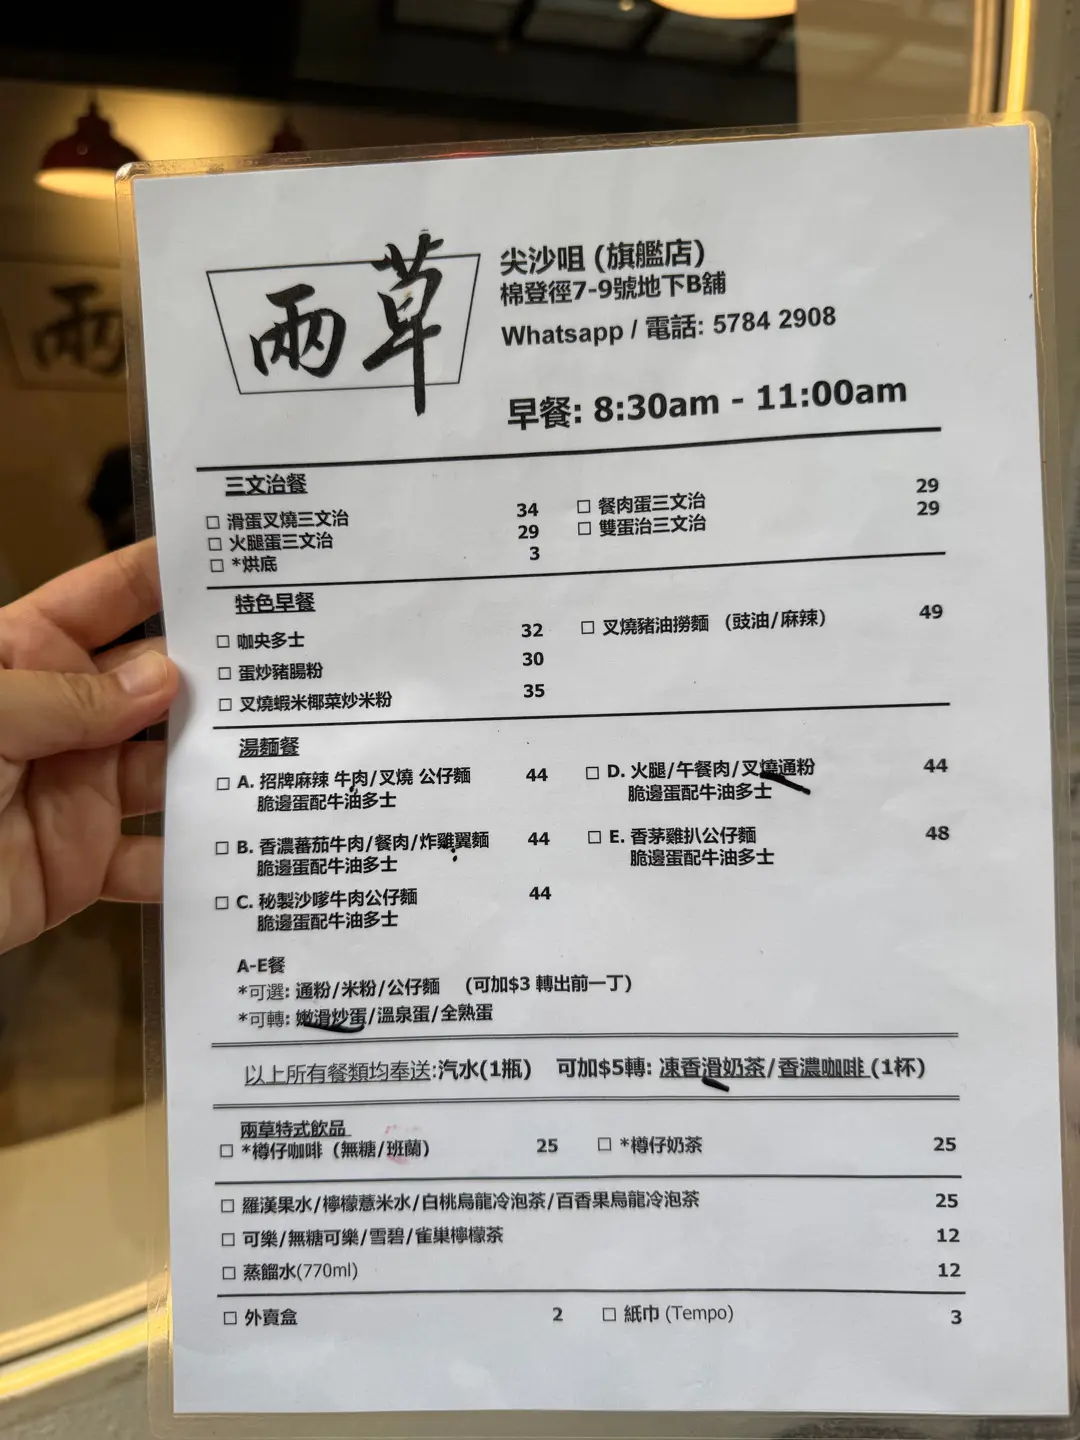 兩草
尖沙咀 (旗艦店)
棉登徑7-9號地下B舖
Whatsapp / 電話: 5784 2908
早餐: 8:30am - 11:00am
三文治餐
□ 滑蛋叉燒三文治 34
□ 火腿蛋三文治 29
□ *烘底 3
□ 餐肉蛋三文治 29
□ 雙蛋治三文治 29
特色早餐
□ 咖央多士 32
□ 蛋炒豬腸粉 30
□ 叉燒蝦米椰菜炒米粉 35
□ 叉燒豬油撈麵 (豉油/麻辣) 49
湯麵餐
□ A. 招牌麻辣 牛肉/叉燒 公仔麵 44
脆邊蛋配牛油多士
□ B. 香濃蕃茄牛肉/餐肉/炸雞翼麵 44
脆邊蛋配牛油多士
□ C. 秘製沙嗲牛肉公仔麵 44
脆邊蛋配牛油多士
□ D. 火腿/午餐肉/叉燒通粉 44
脆邊蛋配牛油多士
□ E. 香茅雞扒公仔麵 48
脆邊蛋配牛油多士
A-E餐
*可選: 通粉/米粉/公仔麵 (可加$3 轉出前一丁)
*可轉: 嫩滑炒蛋/溫泉蛋/全熟蛋
以上所有餐類均奉送:汽水(1瓶) 可加$5轉: 凍香滑奶茶/香濃咖啡 (1杯)
兩草特式飲品
□ *樽仔咖啡 (無糖/班蘭) 25
□ *樽仔奶茶 25
□ 羅漢果水/檸檬薏米水/白桃烏龍冷泡茶/百香果烏龍冷泡茶 25
□ 可樂/無糖可樂/雪碧/雀巢檸檬茶 12
□ 蒸餾水(770ml) 12
□ 外賣盒 2
□ 紙巾 (Tempo) 3
兩